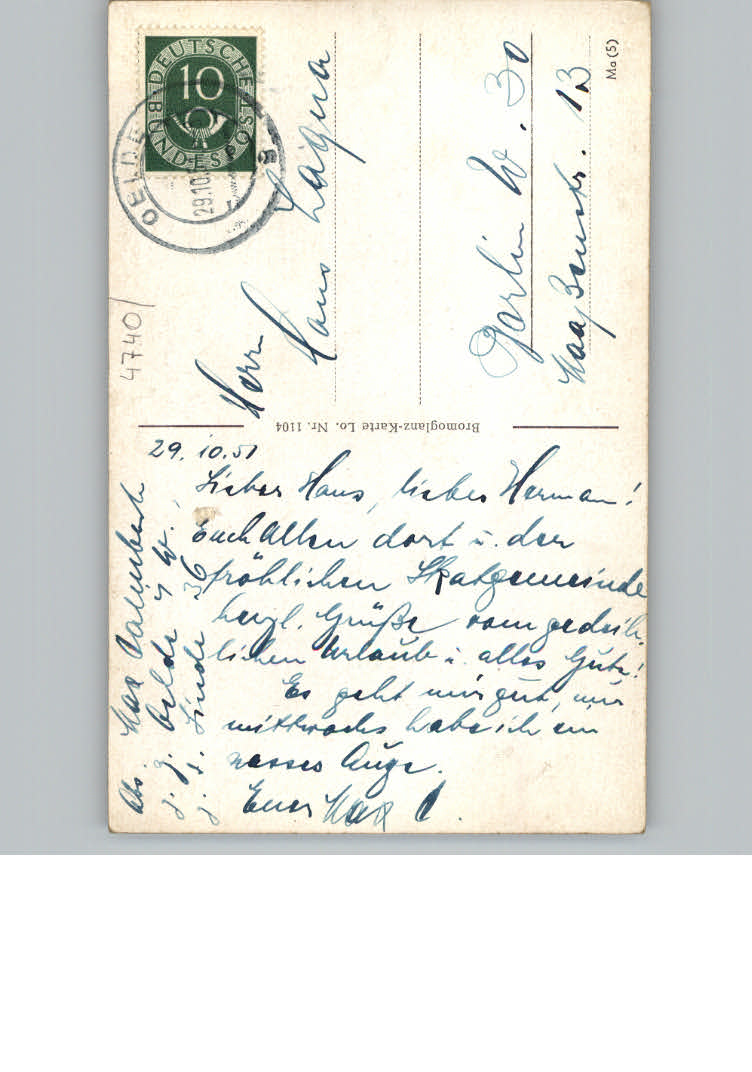 DEUTSCHE BUNDESPOST
10
OELDE
29.10.
Herr
Hans
Berlin W. 30
Maaßenstr. 13
Ma (5)
4740/
Bromoglanz-Karte Lo. Nr. 1104
29.10.51
Lieber Hans, lieber Herman!
Euch Allen dort u. der
fröhlichen Skatgemeinde
herzl. Grüße vom gedeih-
lichen Urlaub u. alles Gute!
Es geht mir gut, nur
mittwochs habe ich ein
nasses Auge.
Euer Max
Abs. Max
z. Z. Oelde i/W.
Linde 36